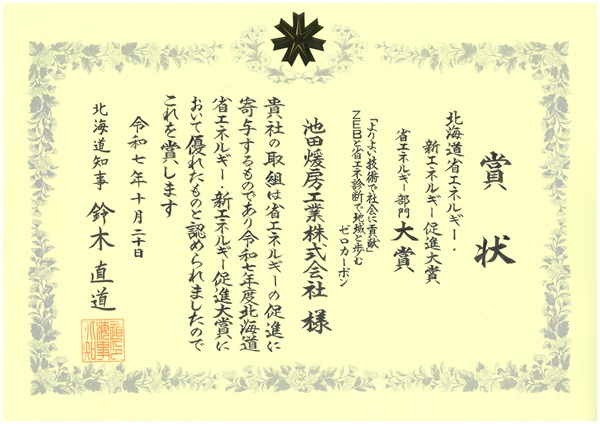 賞状
北海道省エネルギー・
新エネルギー促進大賞
省エネルギー部門 大賞
「よりよい技術で社会に貢献」
ZEBと省エネ診断で地域と歩む
ゼロカーボン
池田煖房工業株式会社 様
貴社の取組は省エネルギーの促進に
寄与するものであり令和七年度北海道
省エネルギー・新エネルギー促進大賞に
おいて優れたものと認められましたので
これを賞します
令和七年十月二十日
北海道知事 鈴木直道